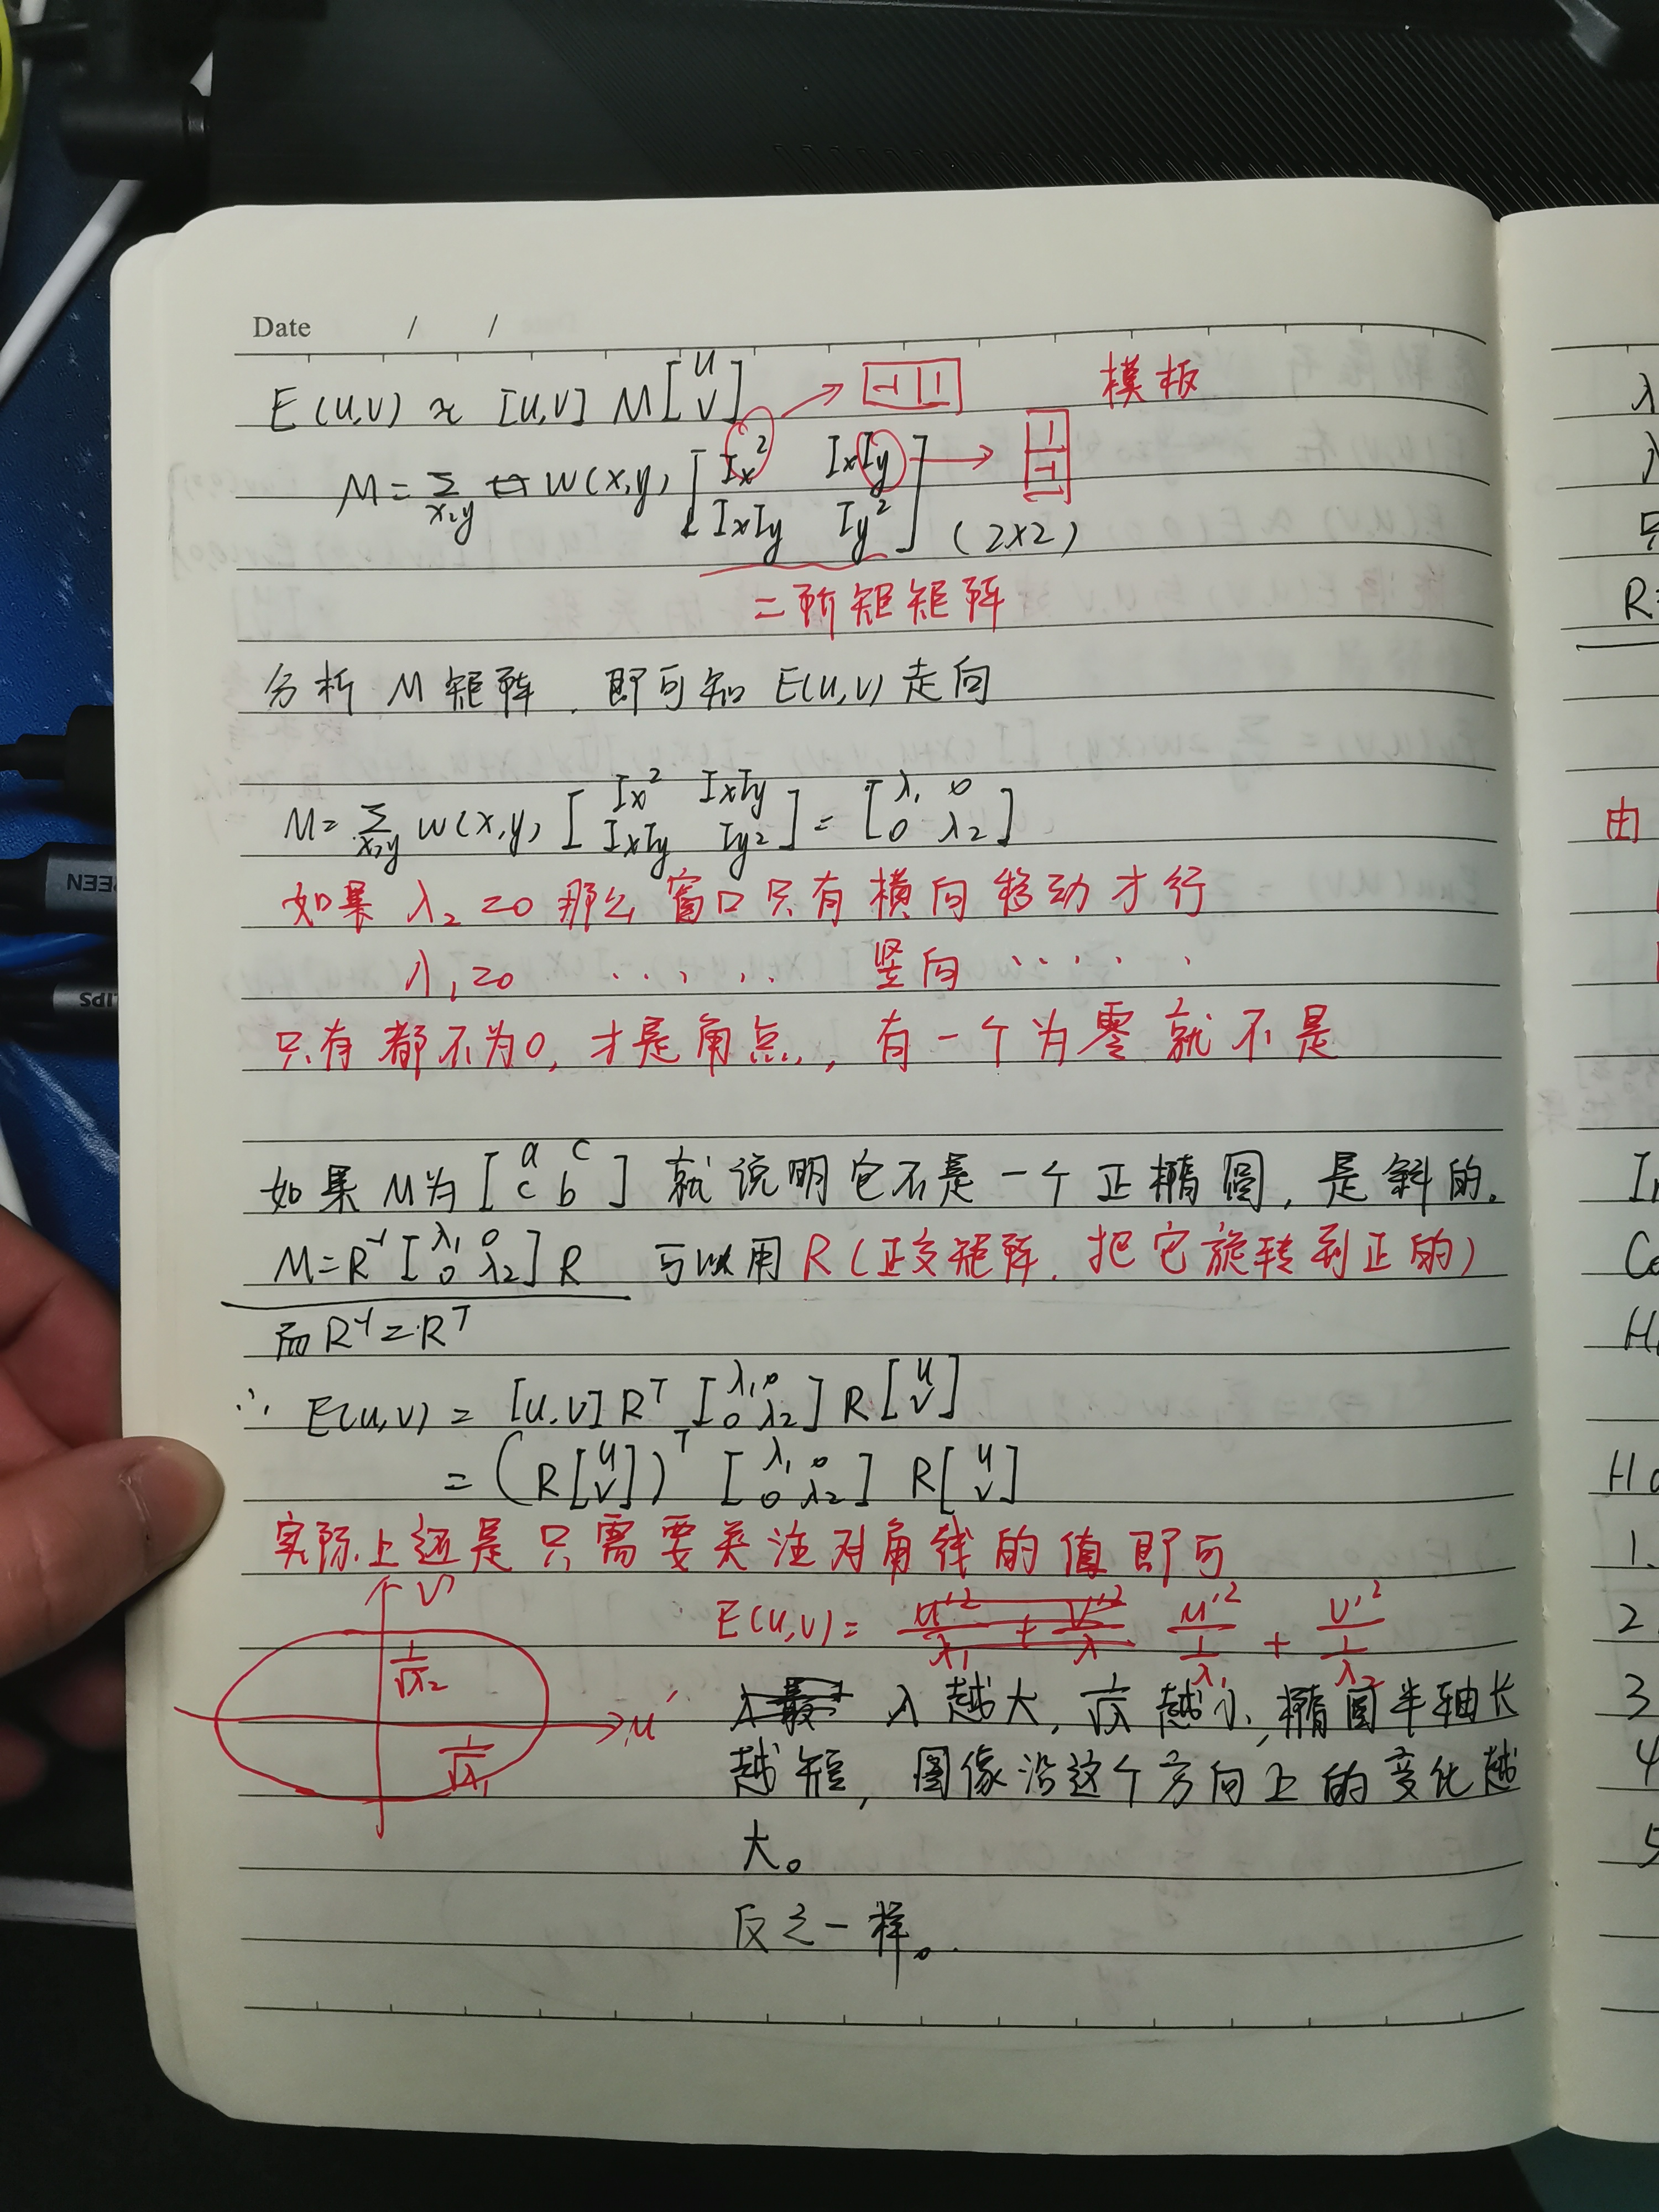 Date / /
E(u,v) ≈ [u,v] M [u v] → [-1 | 1] 模板
M = Σ x,y w(x,y) [Ix² IxIy IxIy Iy²] → [1 -1] (2×2)
二阶矩矩阵
分析 M 矩阵, 即可知 E(u,v) 走向
M = Σ x,y w(x,y) [Ix² IxIy IxIy Iy2] = [λ1 0 0 λ2]
如果 λ2=0 那么窗口只有横向移动才行
λ1=0 ······ 竖向 ·····
只有都不为0, 才是角点, 有一个为零就不是
如果 M为 [a c c b] 就说明它不是一个正椭圆, 是斜的。
M=R⁻¹ [λ1 0 0 λ2] R 可以用 R (正交矩阵, 把它旋转到正的)
而 R⁻¹=R^T
∴ E(u,v) = [u,v] R^T [λ1 0 0 λ2] R [u v]
= (R [u v])^T [λ1 0 0 λ2] R [u v]
实际上还是只需要关注对角线的值即可
E(u,v) = u'²/λ1 + v'²/λ u'²/(1/λ1) + v'²/(1/λ2)
v'
1/√λ2
u'
1/√λ1
λ 越大, 1/√λ 越小, 椭圆半轴长
越短, 图像沿这个方向上的变化越
大。
反之一样。
λ
λ
R=
由
H
1.
2
3
4
5
NEE
REEN
LIPS